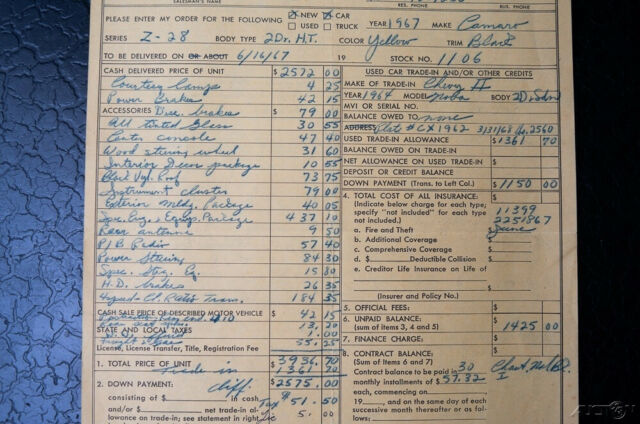 SALESMAN'S NAME
RES. PHONE
BUS. PHONE
PLEASE ENTER MY ORDER FOR THE FOLLOWING X NEW X CAR YEAR 1967 MAKE Camaro
USED TRUCK
SERIES Z-28 BODY TYPE 2Dr. H.T. COLOR Yellow TRIM Black
TO BE DELIVERED ON OR ABOUT 6/16/67 19 STOCK NO. 1106
CASH DELIVERED PRICE OF UNIT $ 2572 00
Courtesy Lamps 4 25
Power Brakes 42 15
ACCESSORIES Disc. brakes $ 79 00
All tinted Glass 30 55
Center console 47 40
Wood steering wheel 31 60
Interior Decor package 10 55
Black Vyl. Roof 73 75
Instrument cluster 79 00
Exterior Mldg. Package 40 05
Spec. Eng. & Equip. Package 437 10
Rear antenna 9 50
P/B Radio 57 40
Power Steering 84 30
Spec. Strg. Eq. 15 80
H.D. brakes 26 35
4 speed Cl. Ratio Trans. 184 35
CASH SALE PRICE OF DESCRIBED MOTOR VEHICLE $ 42 15
Rear End 410
13.20
STATE AND LOCAL TAXES 1.00
55.25
License, License Transfer, Title, Registration Fee
1. TOTAL PRICE OF UNIT $ 3936.70
Trade in 1361 70
2. DOWN PAYMENT: diff. $ 2575.00
consisting of $ in cash Tax $ 51.50
and/or $ net trade-in al-
lowance on trade-in; see statement in right 5.00
USED CAR TRADE-IN AND/OR OTHER CREDITS
MAKE OF TRADE-IN Chevy II
YEAR 1964 MODEL Nova BODY 2D. Sdn
MVI OR SERIAL NO.
BALANCE OWED TO none
ADDRESS Plate # CX1962 3/31/68 2560
USED TRADE-IN ALLOWANCE $ 1361 70
BALANCE OWED ON TRADE-IN
NET ALLOWANCE ON USED TRADE-IN
DEPOSIT OR CREDIT BALANCE
DOWN PAYMENT (Trans. to Left Col.) $ 1150 00
4. TOTAL COST OF ALL INSURANCE:
(Indicate below charge for each type;
specify "not included" for each type
not included.)
11399
2251867
a. Fire and Theft $ June
b. Additional Coverage $
c. Comprehensive Coverage $
d. $ Deductible Collision $
e. Creditor Life Insurance on Life of
$
(Insurer and Policy No.)
5. OFFICIAL FEES: $
6. UNPAID BALANCE: $ 1425 00
(sum of items 3, 4 and 5)
7. FINANCE CHARGE: $
8. CONTRACT BALANCE: $
(Sum of Items 6 and 7)
Contract balance to be paid in 30
monthly installments of $ 57.32
each, commencing on
19, and on the same day of each
successive month thereafter or as fol-
lows: